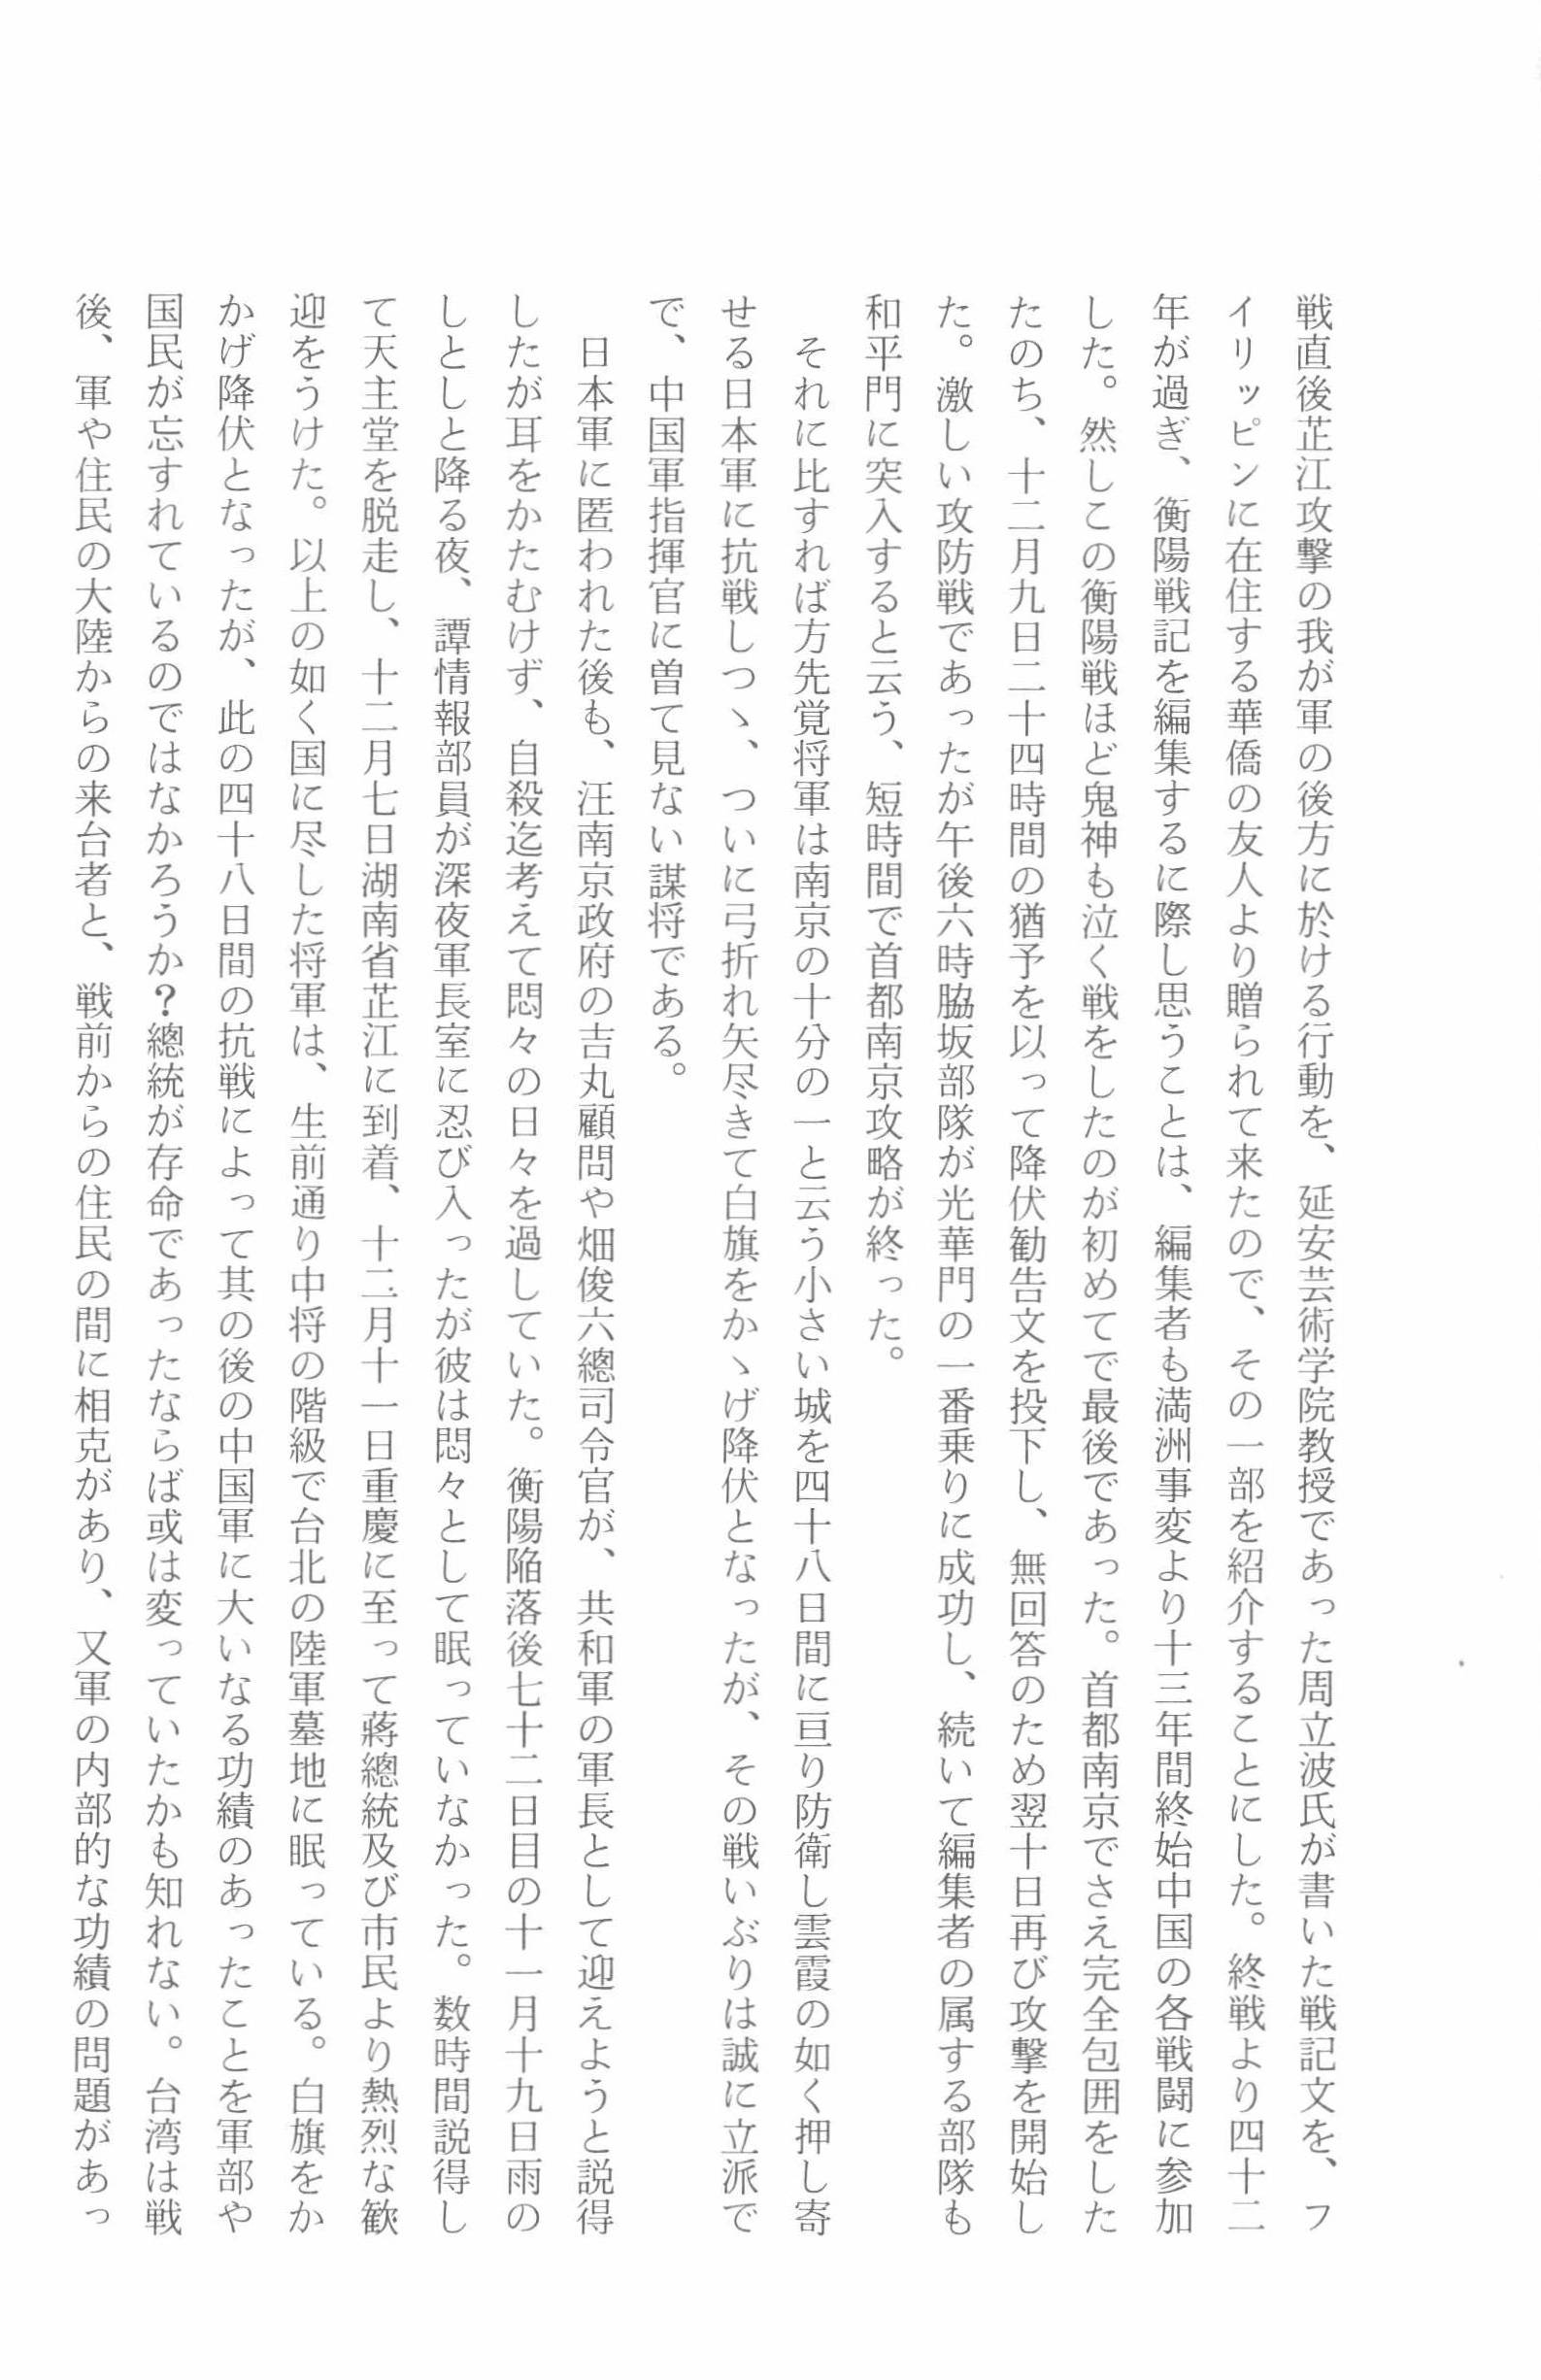 戦直後芷江攻撃の我が軍の後方に於ける行動を、延安芸術学院教授であった周立波氏が書いた戦記文を、フ
イリッピンに在住する華僑の友人より贈られて来たので、その一部を紹介することにした。終戦より四十二
年が過ぎ、衡陽戦記を編集するに際し思うことは、編集者も満洲事変より十三年間終始中国の各戦闘に参加
した。然しこの衡陽戦ほど鬼神も泣く戦をしたのが初めてで最後であった。首都南京でさえ完全包囲をした
たのち、十二月九日二十四時間の猶予を以って降伏勧告文を投下し、無回答のため翌十日再び攻撃を開始し
た。激しい攻防戦であったが午後六時脇坂部隊が光華門の一番乗りに成功し、続いて編集者の属する部隊も
和平門に突入すると云う、短時間で首都南京攻略が終った。
それに比すれば方先覚将軍は南京の十分の一と云う小さい城を四十八日間に亘り防衛し雲霞の如く押し寄
せる日本軍に抗戦しつゝ、ついに弓折れ矢尽きて白旗をかゝげ降伏となったが、その戦いぶりは誠に立派で
で、中国軍指揮官に曽て見ない謀将である。
日本軍に匿われた後も、汪南京政府の吉丸顧問や畑俊六總司令官が、共和軍の軍長として迎えようと説得
したが耳をかたむけず、自殺迄考えて悶々の日々を過していた。衡陽陥落後七十二日目の十一月十九日雨の
しとしと降る夜、譚情報部員が深夜軍長室に忍び入ったが彼は悶々として眠っていなかった。数時間説得し
て天主堂を脱走し、十二月七日湖南省芷江に到着、十二月十一日重慶に至って蒋總統及び市民より熱烈な歓
迎をうけた。以上の如く国に尽した将軍は、生前通り中将の階級で台北の陸軍墓地に眠っている。白旗をか
かげ降伏となったが、此の四十八日間の抗戦によって其の後の中国軍に大いなる功績のあったことを軍部や
国民が忘すれているのではなかろうか?總統が存命であったならば或は変っていたかも知れない。台湾は戦
後、軍や住民の大陸からの来台者と、戦前からの住民の間に相克があり、又軍の内部的な功績の問題があっ